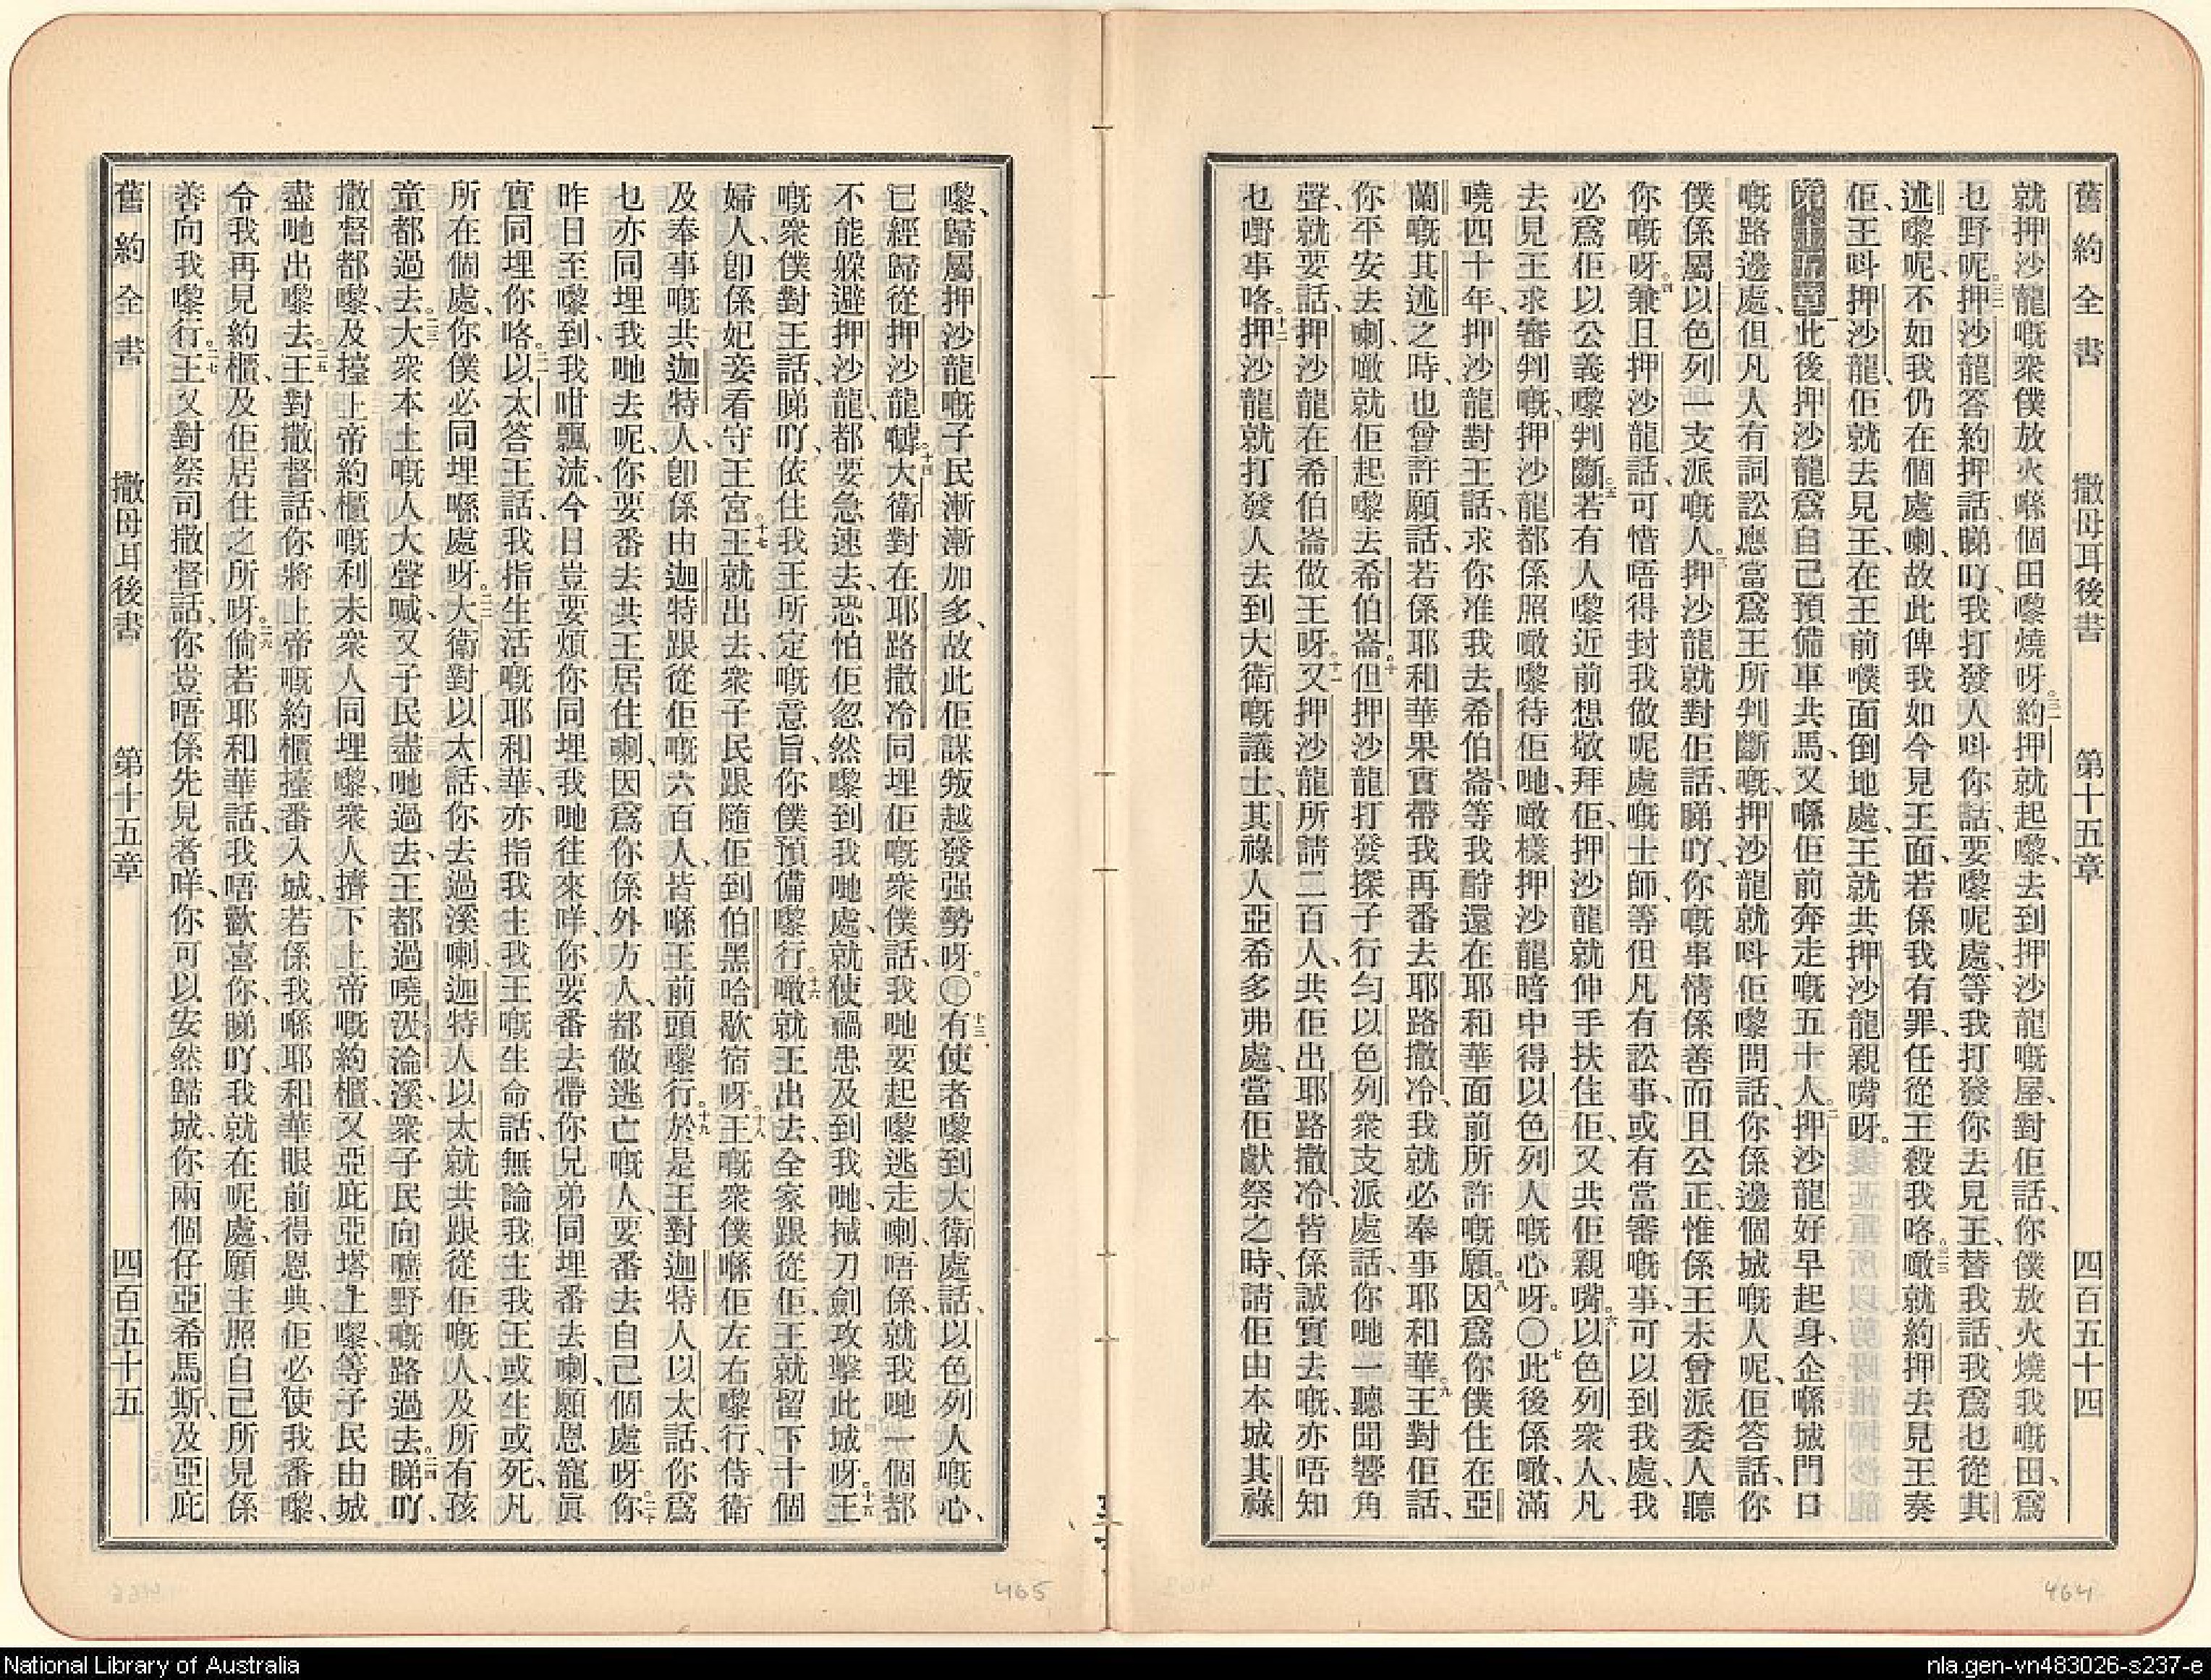 舊約全書 撒母耳後書 第十五章 四百五十四
就押沙龍嘅衆僕放火喺個田嚟燒呀三一約押就起嚟、去到押沙龍嘅屋、對佢話、你僕放火燒我嘅田、爲
乜野呢三二押沙龍答約押話睇吖、我打發人呌你話、要嚟呢處、等我打發你去見王、替我話、我爲乜從其
述嚟呢、不如我仍在個處喇、故此俾我如今見王面、若係我有罪、任從王殺我咯三三噉就約押去見王奏
佢、王呌押沙龍、佢就去見王、在王前㒒面倒地處、王就共押沙龍親嘴呀。
第十五章一此後押沙龍爲自己預備車共馬、又喺佢前奔走嘅五十人二押沙龍好早起身、企喺城門口
嘅路邊處、但凡人有詞訟應當爲王所判斷嘅、押沙龍就呌佢嚟問話、你係邊個城嘅人呢、佢答話、你
僕係屬以色列一支派嘅人三押沙龍就對佢話、睇吖、你嘅事情係善而且公正、惟係王未曾派委人聽
你嘅呀四兼且押沙龍話、可惜唔得封我做呢處嘅士師、等但凡有訟事、或有當審嘅事、可以到我處、我
必爲佢以公義嚟判斷五若有人嚟近前想敬拜佢、押沙龍就伸手扶住佢、又共佢親嘴六以色列衆人、凡
去見王求審判嘅、押沙龍都係照噉嚟待佢哋、噉樣押沙龍暗中得以色列人嘅心呀。〇七此後係噉、滿
嘵四十年、押沙龍對王話、求你准我去希伯崙、等我酧還在耶和華面前所許嘅願八因爲你僕住在亞
蘭嘅其述之時、也曾許願話、若係耶和華果實帶我再番去耶路撒冷、我就必奉事耶和華九王對佢話、
你平安去喇、噉就佢起嚟去希伯崙十但押沙龍打發探子行匀以色列衆支派處話、你哋一聽聞響角
聲、就要話、押沙龍在希伯崙做王呀十一又押沙龍所請二百人、共佢出耶路撒冷、皆係誠實去嘅、亦唔知
乜嘢事咯十二押沙龍就打發人去到大衛嘅議士、其祿人亞希多弗處、當佢獻祭之時、請佢由本城其祿
嚟、歸屬押沙龍嘅子民漸漸加多、故此佢謀叛越發强勢呀。〇十三有使者嚟到大衛處話、以色列人嘅心、
已經歸從押沙龍嘑十四大衛對在耶路撒冷同埋佢嘅衆僕話、我哋要起嚟逃走喇、唔係、就我哋一個都
不能躲避押沙龍、都要急速去、恐怕佢忽然嚟到我哋處、就使禍患及到我哋、搣刀劍攻擊此城呀十五王
嘅衆僕對王話、睇吖、依住我王所定嘅意旨、你僕預備嚟行十六噉就王出去、全家跟從佢、王就留下十個
婦人、卽係妃妾看守王宮十七王就出去、衆子民跟隨佢到伯黑哈歇宿呀十八王嘅衆僕喺佢左右嚟行、侍衛
及奉事嘅共迦特人、卽係由迦特跟從佢嘅六百人、皆喺王前頭嚟行十九於是王對迦特人以太話、你爲
乜亦同埋我哋去呢、你要番去共王居住喇、因爲你係外方人、都做逃亡嘅人、要番去自己個處呀二十你
昨日至嚟到、我咁飄流、今日豈要煩你同埋我哋往來咩、你要番去、帶你兄弟同埋番去喇、願恩寵眞
實同埋你咯二一以太答王話、我指生活嘅耶和華、亦指我主我王嘅生命話、無論我主我王或生或死、凡
所在個處、你僕必同埋喺處呀二二大衛對以太話、你去過溪喇、迦特人以太就共跟從佢嘅人、及所有孩
童都過去二三大衆本土嘅人大聲喊、又子民盡哋過去、王都過嘵汲淪溪、衆子民向曠野嘅路過去二四睇吖、
撒督都嚟、及擡上帝約櫃嘅利未衆人同埋嚟、衆人擠下上帝嘅約櫃、又亞庇亞塔上嚟、等子民由城
盡哋出嚟去二五王對撒督話、你將上帝嘅約櫃擡番入城、若係我喺耶和華眼前得恩典、佢必使我番嚟、
令我再見約櫃、及佢居住之所呀二六倘若耶和華話、我唔歡喜你、睇吖、我就在呢處、願主照自己所見係
善向我嚟行二七王又對祭司撒督話、你豈唔係先見者咩、你可以安然歸城、你兩個仔亞希馬斯、及亞庇
舊約全書 撒母耳後書 第十五章 四百五十五
465
464
National Library of Australia
nla.gen-vn483026-s237-e